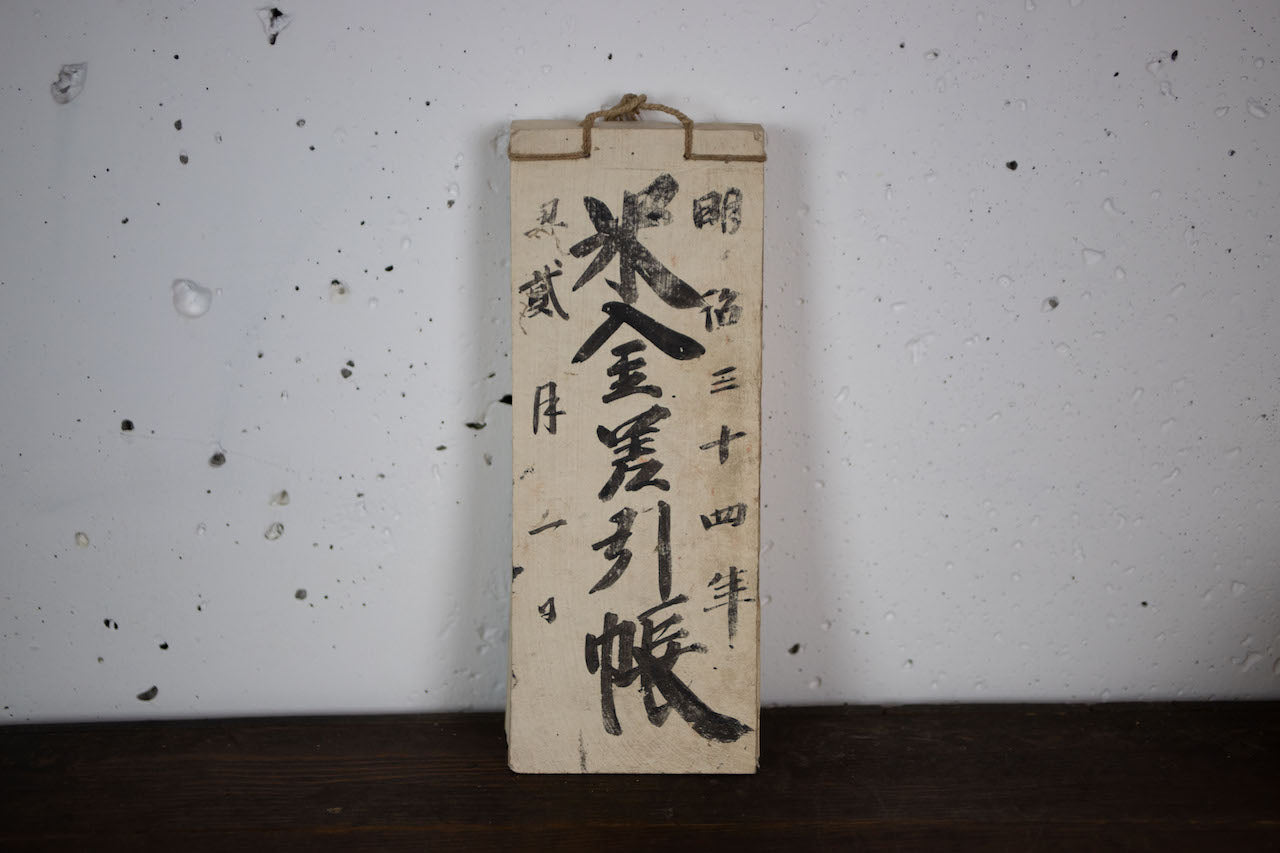 明治三十四年
米金差引帳
貳月一日